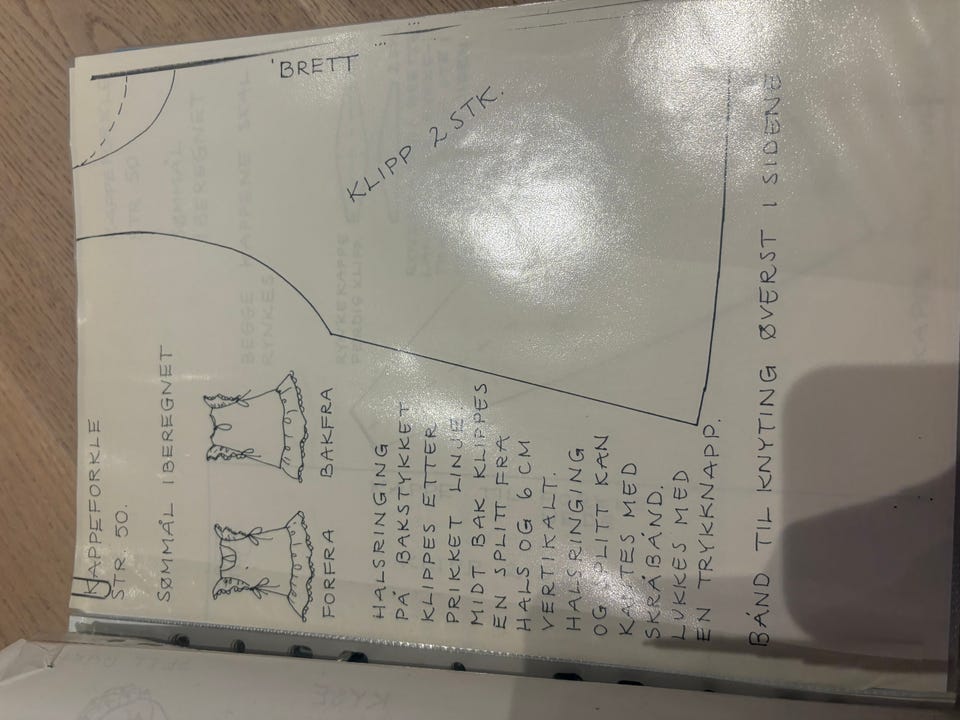 KAPPEFORKLE
STR. 50.
SØMMÅL IBEREGNET
FORFRA
BAKFRA
HALSRINGING
PÅ BAKSTYKKET
KLIPPES ETTER
PRIKKET LINJE
MIDT BAK KLIPPES
EN SPLITT FRA
HALS OG 6 CM
VERTIKALT.
HALSRINGING
OG SPLITT KAN
KANTES MED
SKRÅBÅND.
LUKKES MED
EN TRYKKNAPP.
BÅND TIL KNYTING ØVERST I SIDENE
KLIPP 2 STK.
BRETT